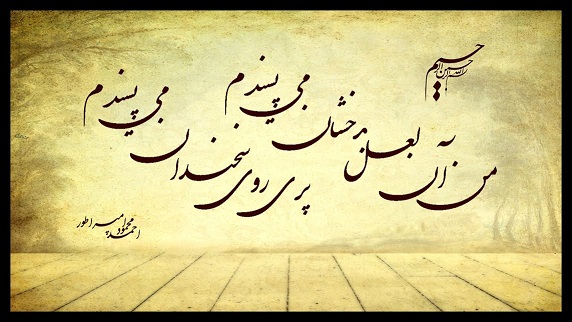 بسم الله الرحمن الرحیم
من نه آن لعل بدخشان می پسندم
پری روی سخندان می پسندم
احمد محمود امپراطور